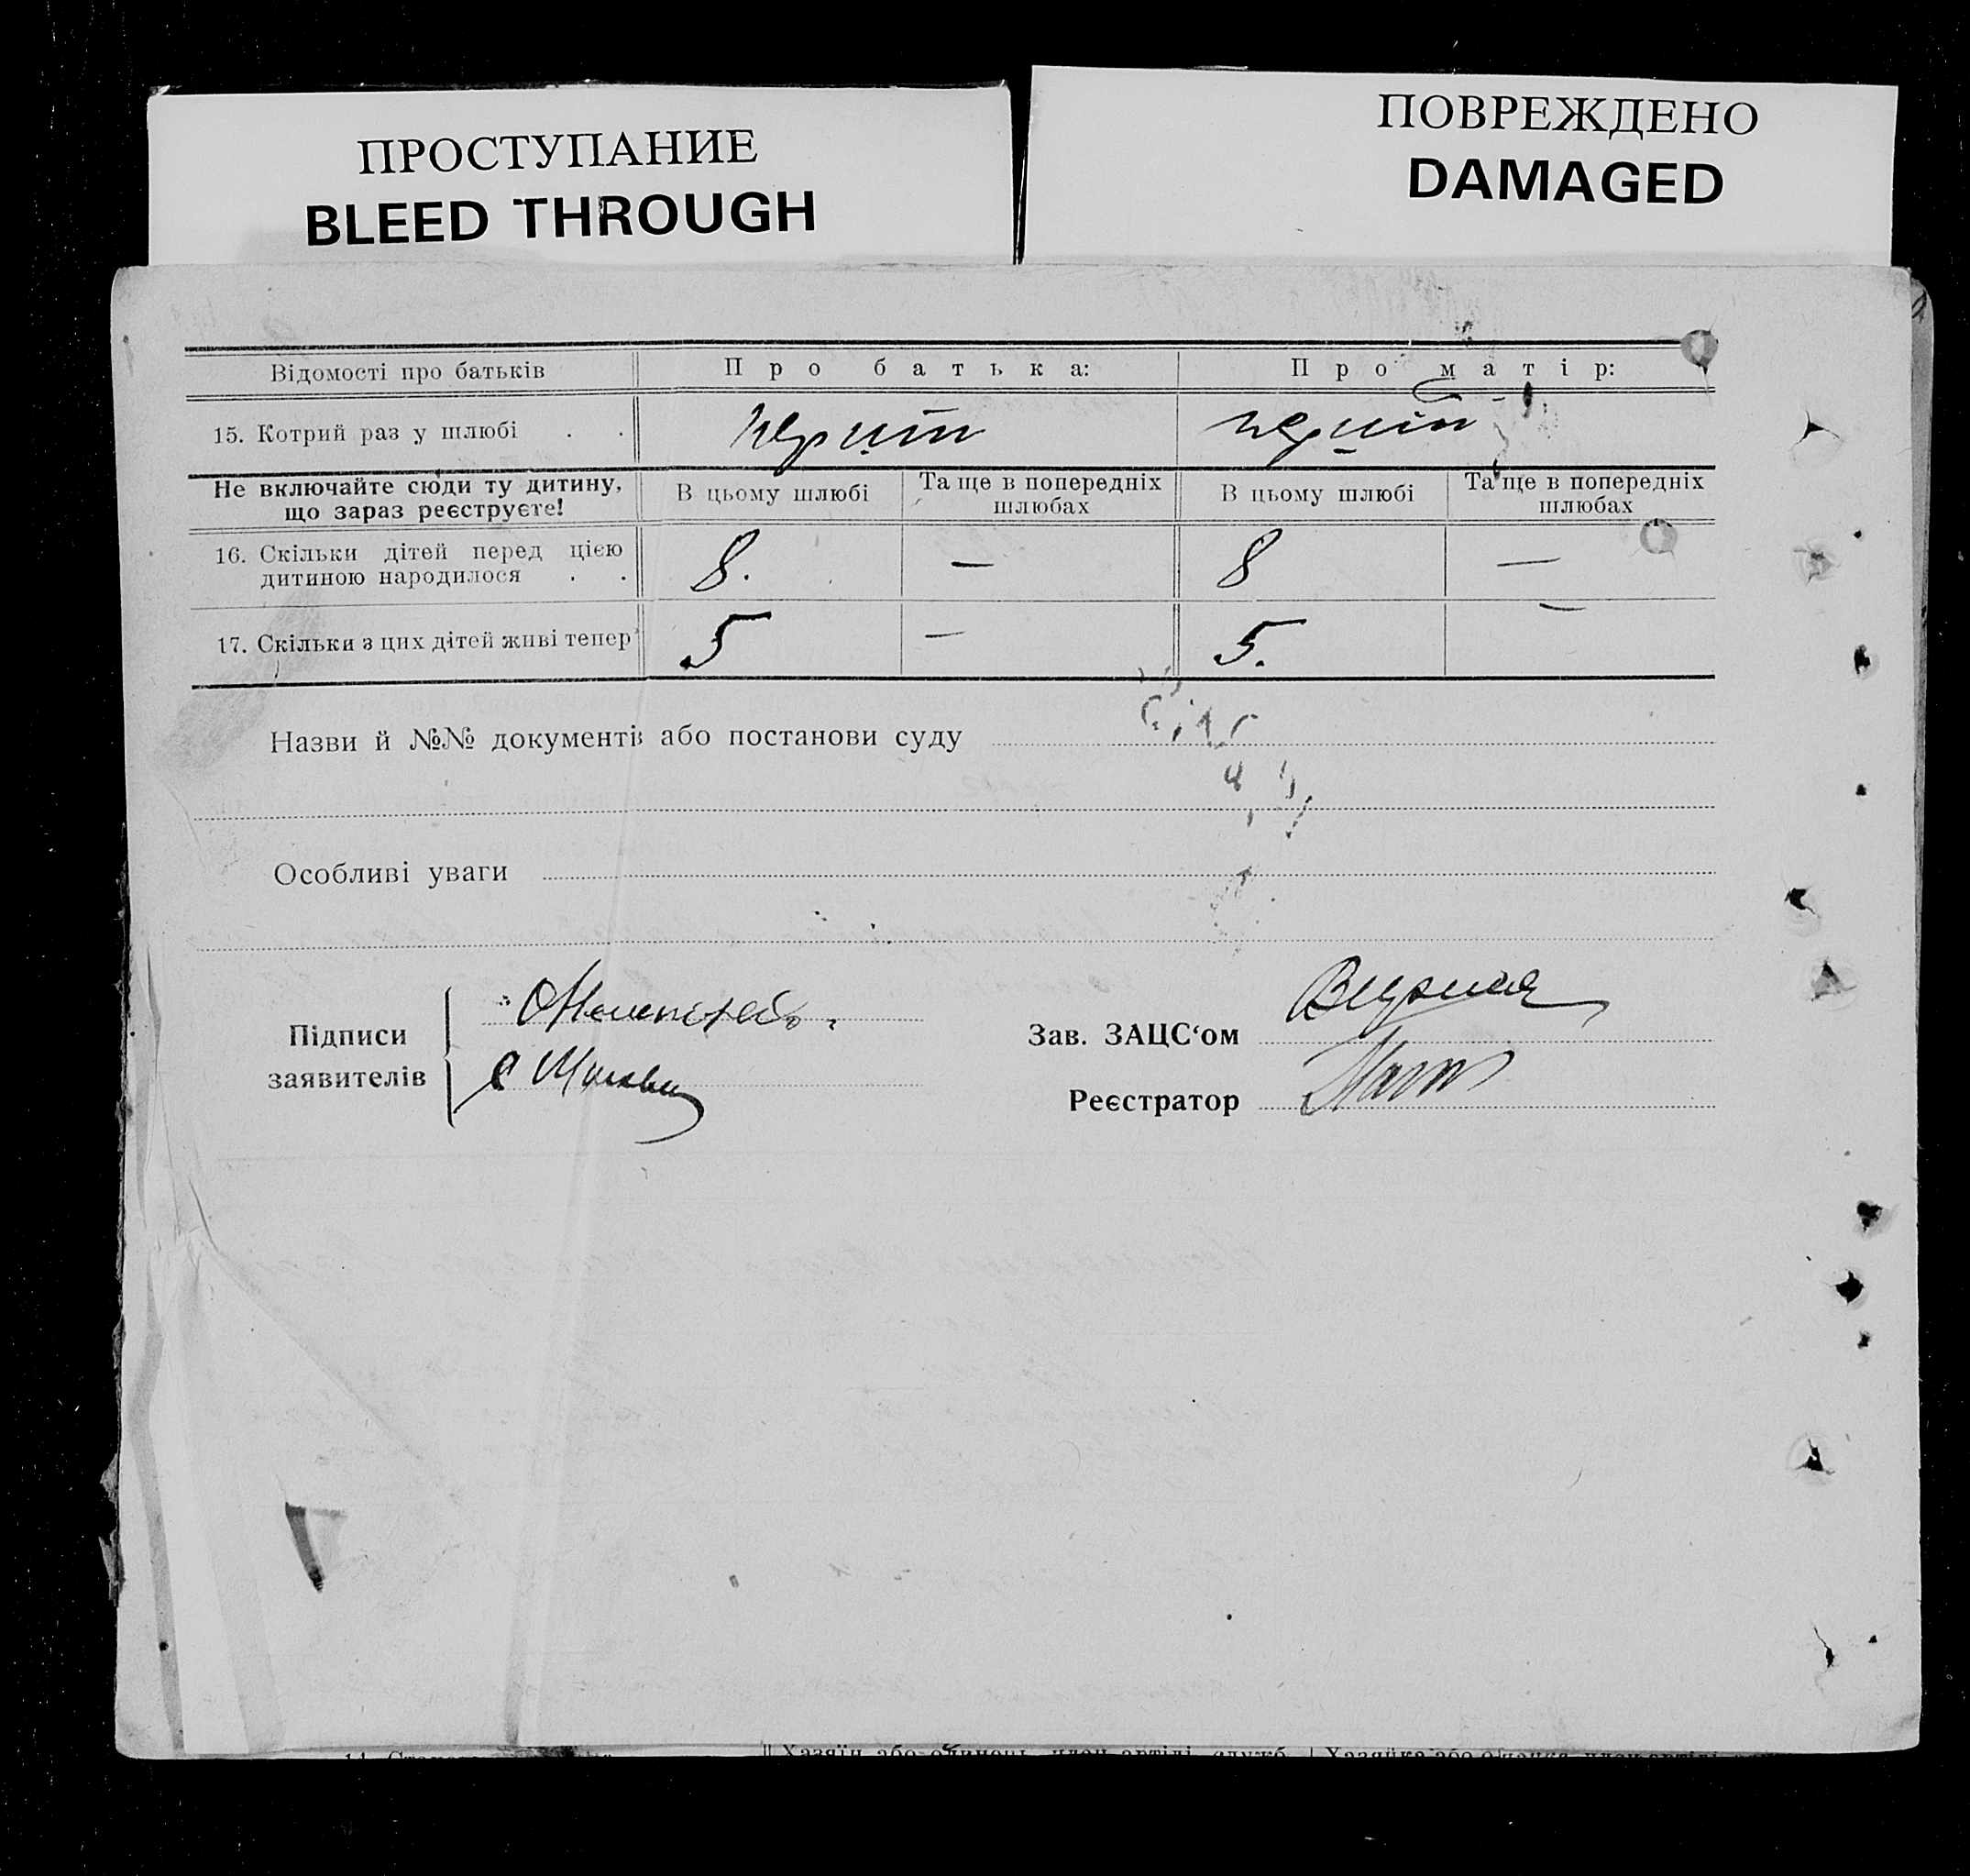 ПРОСТУПАНИЕ
BLEED THROUGH
ПОВРЕЖДЕНО
DAMAGED
Відомості про батьків Про батька: Про матір:
15. Котрий раз у шлюбі . . перший перший
Не включайте сюди ту дитину, що зараз реєструєте! В цьому шлюбі Та ще в попередніх шлюбах В цьому шлюбі Та ще в попередніх шлюбах
16. Скільки дітей перед цією
дитиною народилося . . 8. — 8 —
17. Скільки з цих дітей живі тепер 5 — 5. —
Назви й №№ документів або постанови суду
Особливі уваги
Підписи
заявителів
Зав. ЗАЦС‘ом
Реєстратор